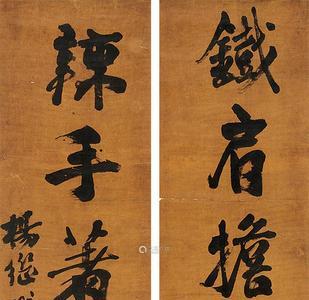 鐵肩擔
辣手著
楊繼